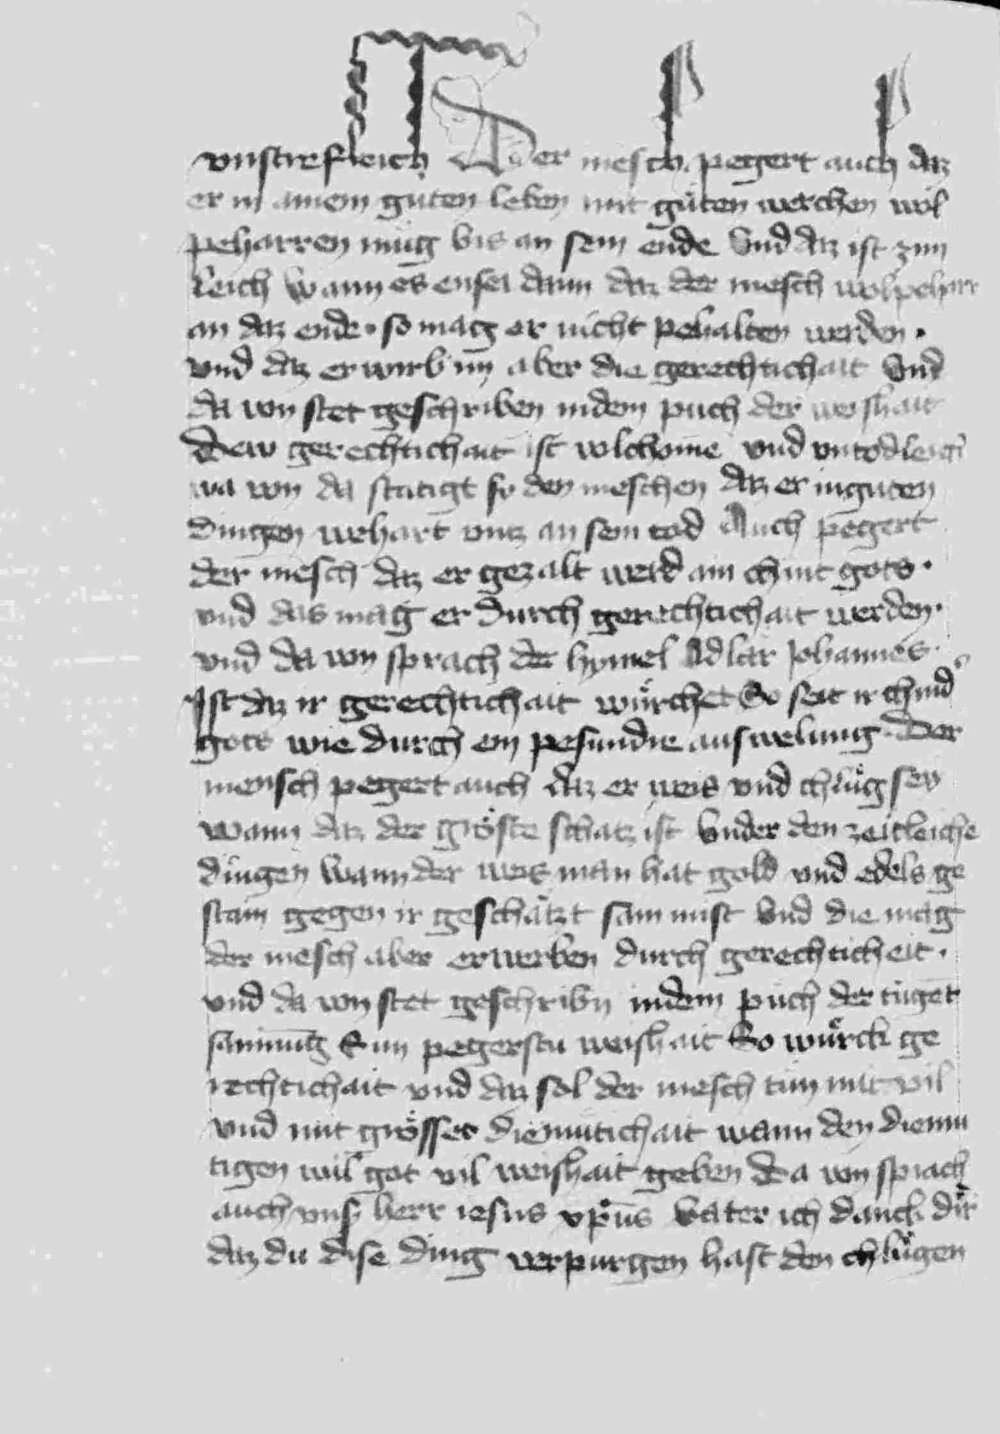 vnstrefleich Der mesch pegert auch daz
er in ainem guten leben mit gůten werchen wol
peharren müg bis an sein ende Vnd daz ist zim
leich Wann es ensei dann daz der mesch wol pehar
an daz ende · so mag er nicht pehalten werden ·
vnd daz erwirb im aber die gerechtichait Vnd
da von stet geschriben indem puch der weishait
Dew gerechtichait ist volchome vnd vntodleich
va von da statigt sy den meschen daz er inguten
dingen vehart vntz an sein tod Auch pegert
der mesch daz er gezalt werd ain chint gots ·
vnd das mag er durch gerechtichait werden ·
vnd da von sprach der hymel Adlar Johannes ·
Ist daz ir gerechtichait würchet So seit ir chind
gots wie durch ein pesundre auswelung · Der
mensch pegert auch daz er weis vnd chlůg sey
wann daz der gröste schatz ist Vnder den zeitleiche
dingen Wann der weis man hat gold vnd edels ge
stain gegen ir geschätzt sam mist Vnd die mag
der mesch aber erwerben durch gerechticheit ·
vnd da von stet geschribn indem puch der tuget
samung Sun pegerstu weishait So würck ge
rechtichait vnd daz sol der mesch tun mit vil
vnd mit grösser diemutichait wann den diemu
tigen wil got vil weishait geben Da von sprach
auch vnser herr iesus xpūs Vater ich danck dir
daz du dise ding verporgen hast den chlůgen